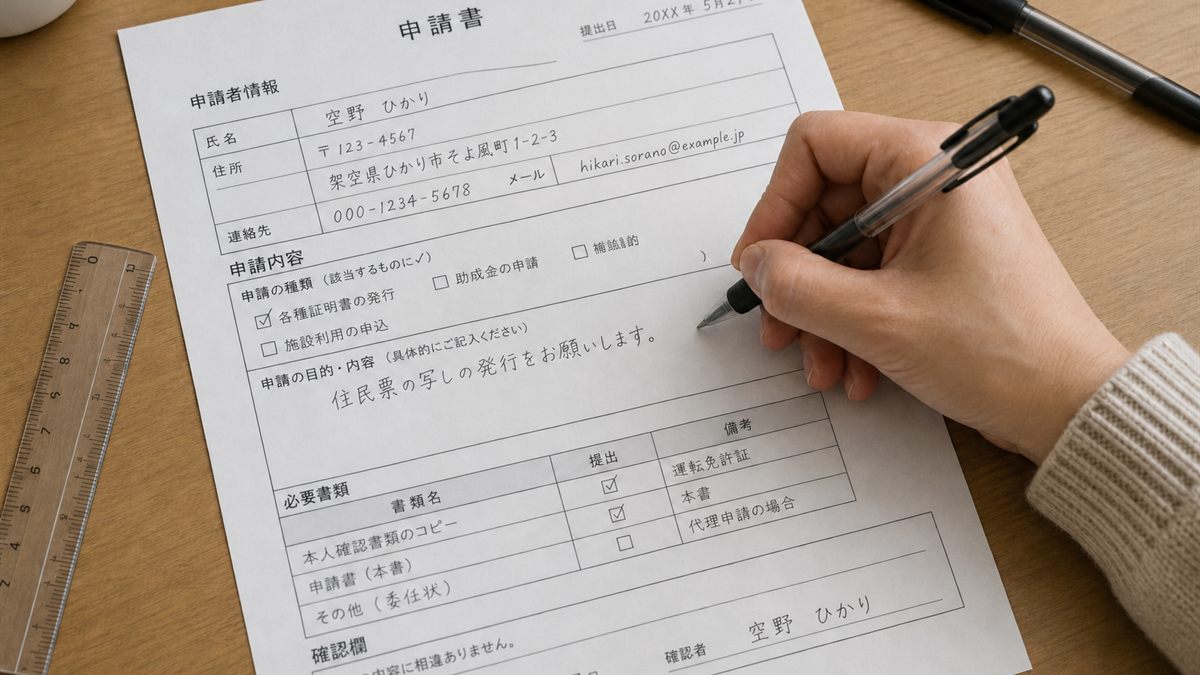 申請書
提出日 20XX年 5月2
申請者情報
氏名 空野 ひかり
住所 〒123-4567
架空県ひかり市そよ風町1-2-3
連絡先 000-1234-5678 メール hikari.sorano@example.jp
申請内容
申請の種類(該当するものに✓)
☑ 各種証明書の発行 ☐ 助成金の申請 ☐ 補 的 )
☐ 施設利用の申込
申請の目的・内容(具体的にご記入ください)
住民票の写しの発行をお願いします。
必要書類
書類名 提出 備考
本人確認書類のコピー ☑ 運転免許証
申請書(本書) ☑ 本書
その他(委任状) ☐ 代理申請の場合
確認欄
内容に相違ありません。
確認者 空野 ひかり
0 2 4 5 7 8